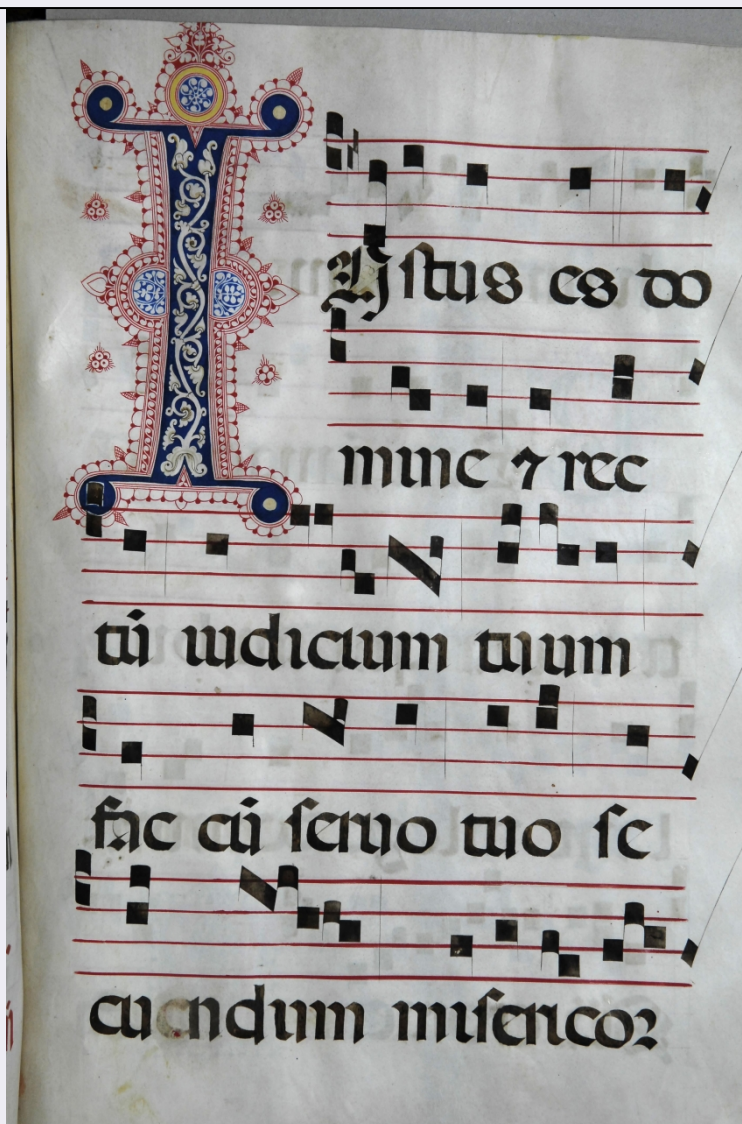 IUstus es do
mine ⁊ rec
tū iudicium tuum
fac cū seruo tuo se
cuendum misericor